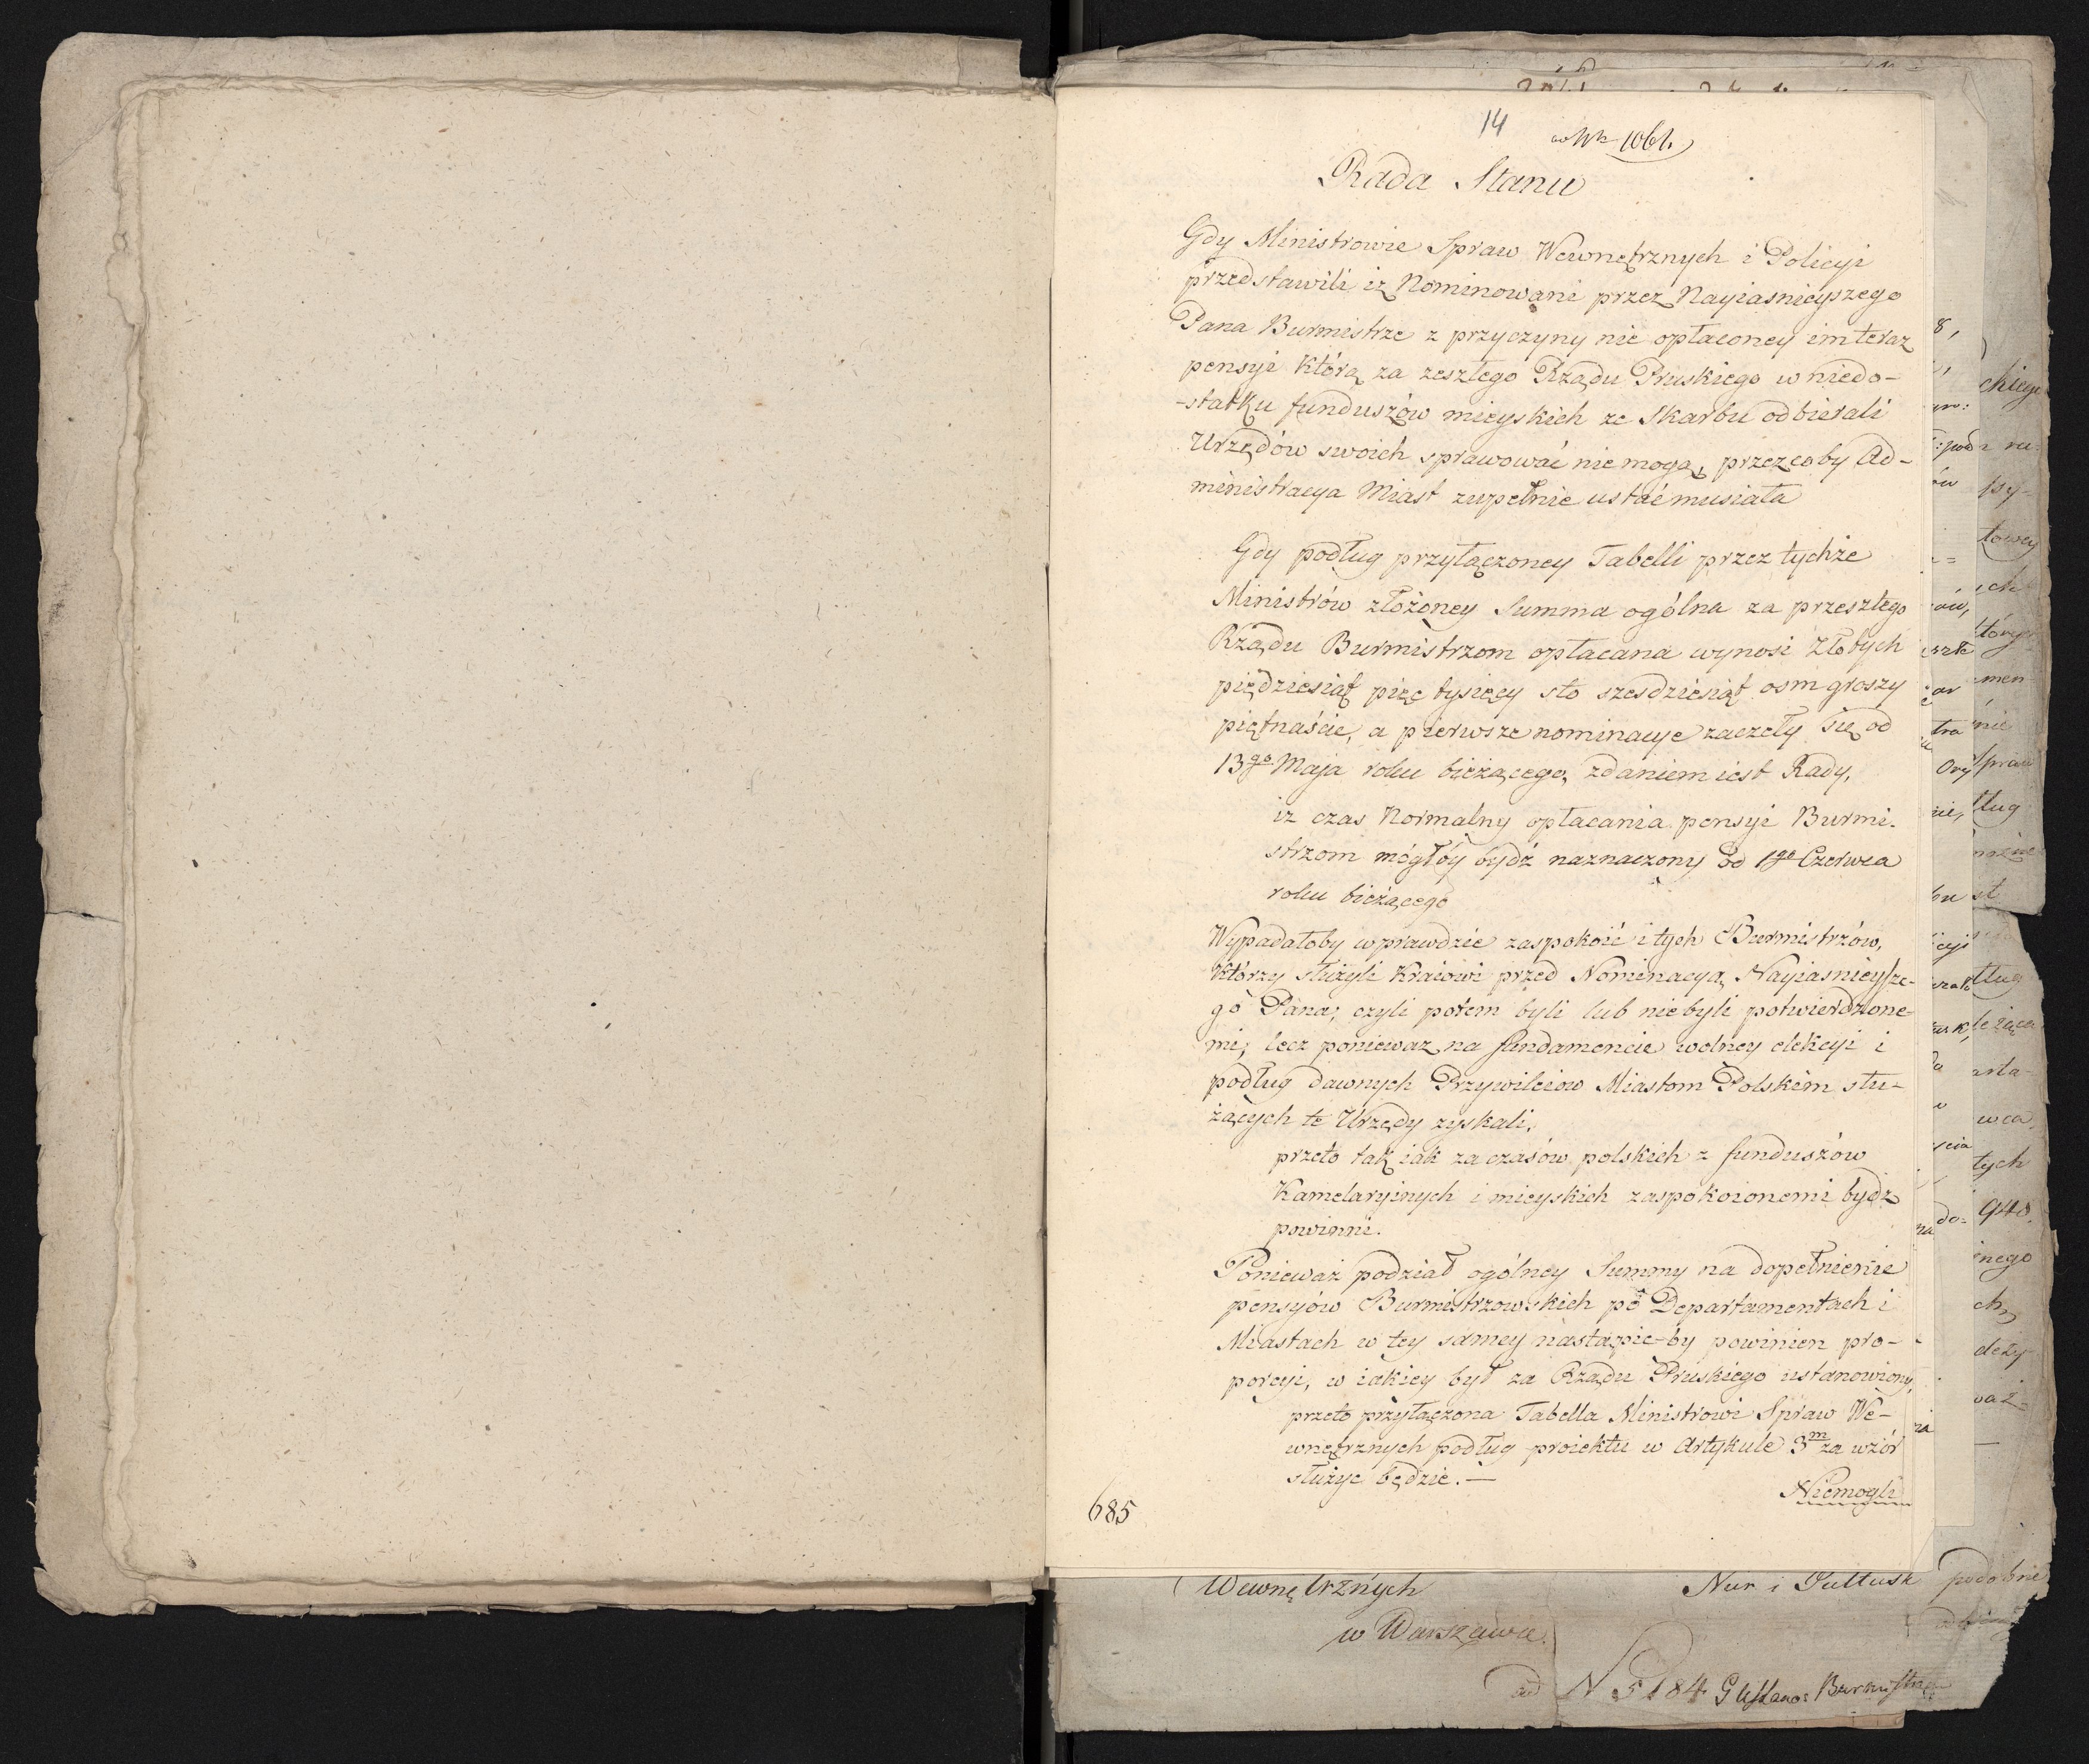 14
ad Nr 1061.
Rada Stanu
Gdy Ministrowie Spraw Wewnętrznych i Policyi
przedstawili iż Nominowani przez Nayiasnieyszego
Pana Burmistrze z przyczyny nie opłaconey im teraz
pensyi którą za zeszłego Rządu Pruskiego w niedo-
-statku funduszów mieyskich ze Skarbu odbierali
Urzędów swoich sprawować nie mogą, przez coby Ad-
ministracya Miast zupełnie ustać musiała
Gdy podług przyłączoney Tabelli przez tychże
Ministrów złożoney Summa ogólna za przeszłego
Rządu Burmistrzom opłacana wynosi Złotych
piędziesiąt pięc tysięcy sto szesdziesiąt osm groszy
piętnaście, a pierwsze nominacye zaczeły się od
13go Maja roku bieżącego, zdaniem iest Rady,
iż czas Normalny opłacania pensyi Burmi-
strzom mógłby bydź naznaczony od 1go Czerwca
roku bieżącego
Wypadałoby wprawdzie zaspokoić i tych Burmistrzów,
którzy służyli Kraiowi przed Nominacyą Nayiasnieysze-
go Pana, czyli potem byli lub niebyli potwierdzone-
mi, lecz ponieważ na fundamencie wolney elekcyi i
podług dawnych Przywileiow Miastom Polskim słu-
żących te Urzędy zyskali,
przeto tak iak za czasów polskich z funduszów
Kamelaryinych i mieyskich zaspokoionemi bydz
powinni.
Ponieważ podział ogólney Summy na dopełnienie
pensyów Burmistrzowskich po Departamentach i
Miastach w tey samey nastąpic-by powinien pro-
porcyi, w iakiey był za Rządu Pruskiego ustanowiony,
przeto przyłączona Tabella Ministrowi Spraw We-
wnętrznych podług proiektu w Artykule 3m za wzór
służyc będzie. —
Niemogli
685
Wewnętrznych
Nur i Pułtusk
podobnie
w Warszawie.
ad N 5184